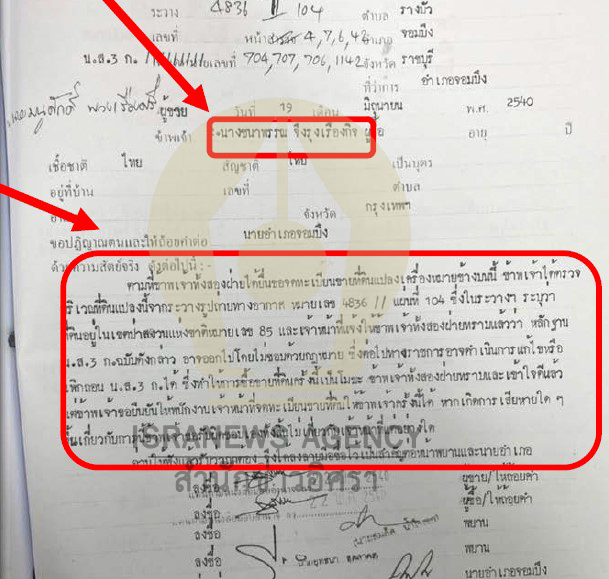 ระวาง 4836 II 104 ตำบล รางบัว
เลขที่ หน้าสำรวจ 4,7,6,42 อำเภอ จอมบึง
น.ส.3 ก. เลขที่ 704,707,706,1142 จังหวัด ราชบุรี
ที่ว่าการ อำเภอจอมบึง
ผู้ขาย วันที่ 19 เดือน มิถุนายน พ.ศ. 2540
ข้าพเจ้า นางชนาพรรณ จึงรุ่งเรืองกิจ ผู้ซื้อ อายุ ปี
เชื้อชาติ ไทย สัญชาติ ไทย เป็นบุตร
อยู่ที่บ้าน เลขที่ ตำบล
จังหวัด กรุงเทพฯ
ขอปฏิญาณตนและให้ถ้อยคำต่อ นายอำเภอจอมบึง
ด้วยความสัตย์จริง ดังต่อไปนี้ :-
ตามที่ข้าพเจ้าทั้งสองฝ่ายได้ยื่นขอจดทะเบียนขายที่ดินแปลงเครื่องหมายข้างบนนี้ ข้าพเจ้าได้ตรวจ
บริเวณที่ดินแปลงนี้จากระวางรูปถ่ายทางอากาศ หมายเลข 4836 II แผ่นที่ 104 ซึ่งในระวางฯ ระบุว่า
ที่ดินอยู่ในเขตป่าสงวนแห่งชาติหมายเลข 85 และเจ้าหน้าที่แจ้งให้ข้าพเจ้าทั้งสองฝ่ายทราบแล้วว่า หลักฐาน
น.ส.3 ก.ฉบับดังกล่าว อาจออกไปโดยไม่ชอบด้วยกฎหมาย ซึ่งต่อไปทางราชการอาจดำเนินการแก้ไขหรือ
เพิกถอน น.ส.3 ก.ได้ ซึ่งทำให้การซื้อขายที่ดินครั้งนี้เป็นโมฆะ ข้าพเจ้าทั้งสองฝ่ายทราบและเข้าใจดีแล้ว
แต่ข้าพเจ้าขอยืนยันให้พนักงานเจ้าหน้าที่จดทะเบียนขายที่ดินให้ข้าพเจ้าครั้งนี้ได้ หากเกิดการเสียหายใด ๆ
ขึ้นเกี่ยวกับการ
ISRANEWS AGENCY
สำนักข่าวอิศรา
ลงชื่อ ผู้ขาย/ให้ถ้อยคำ
ลงชื่อ ผู้ซื้อ/ให้ถ้อยคำ
ลงชื่อ พยาน
ลงชื่อ พยาน
นายอำเภอจอมบึง